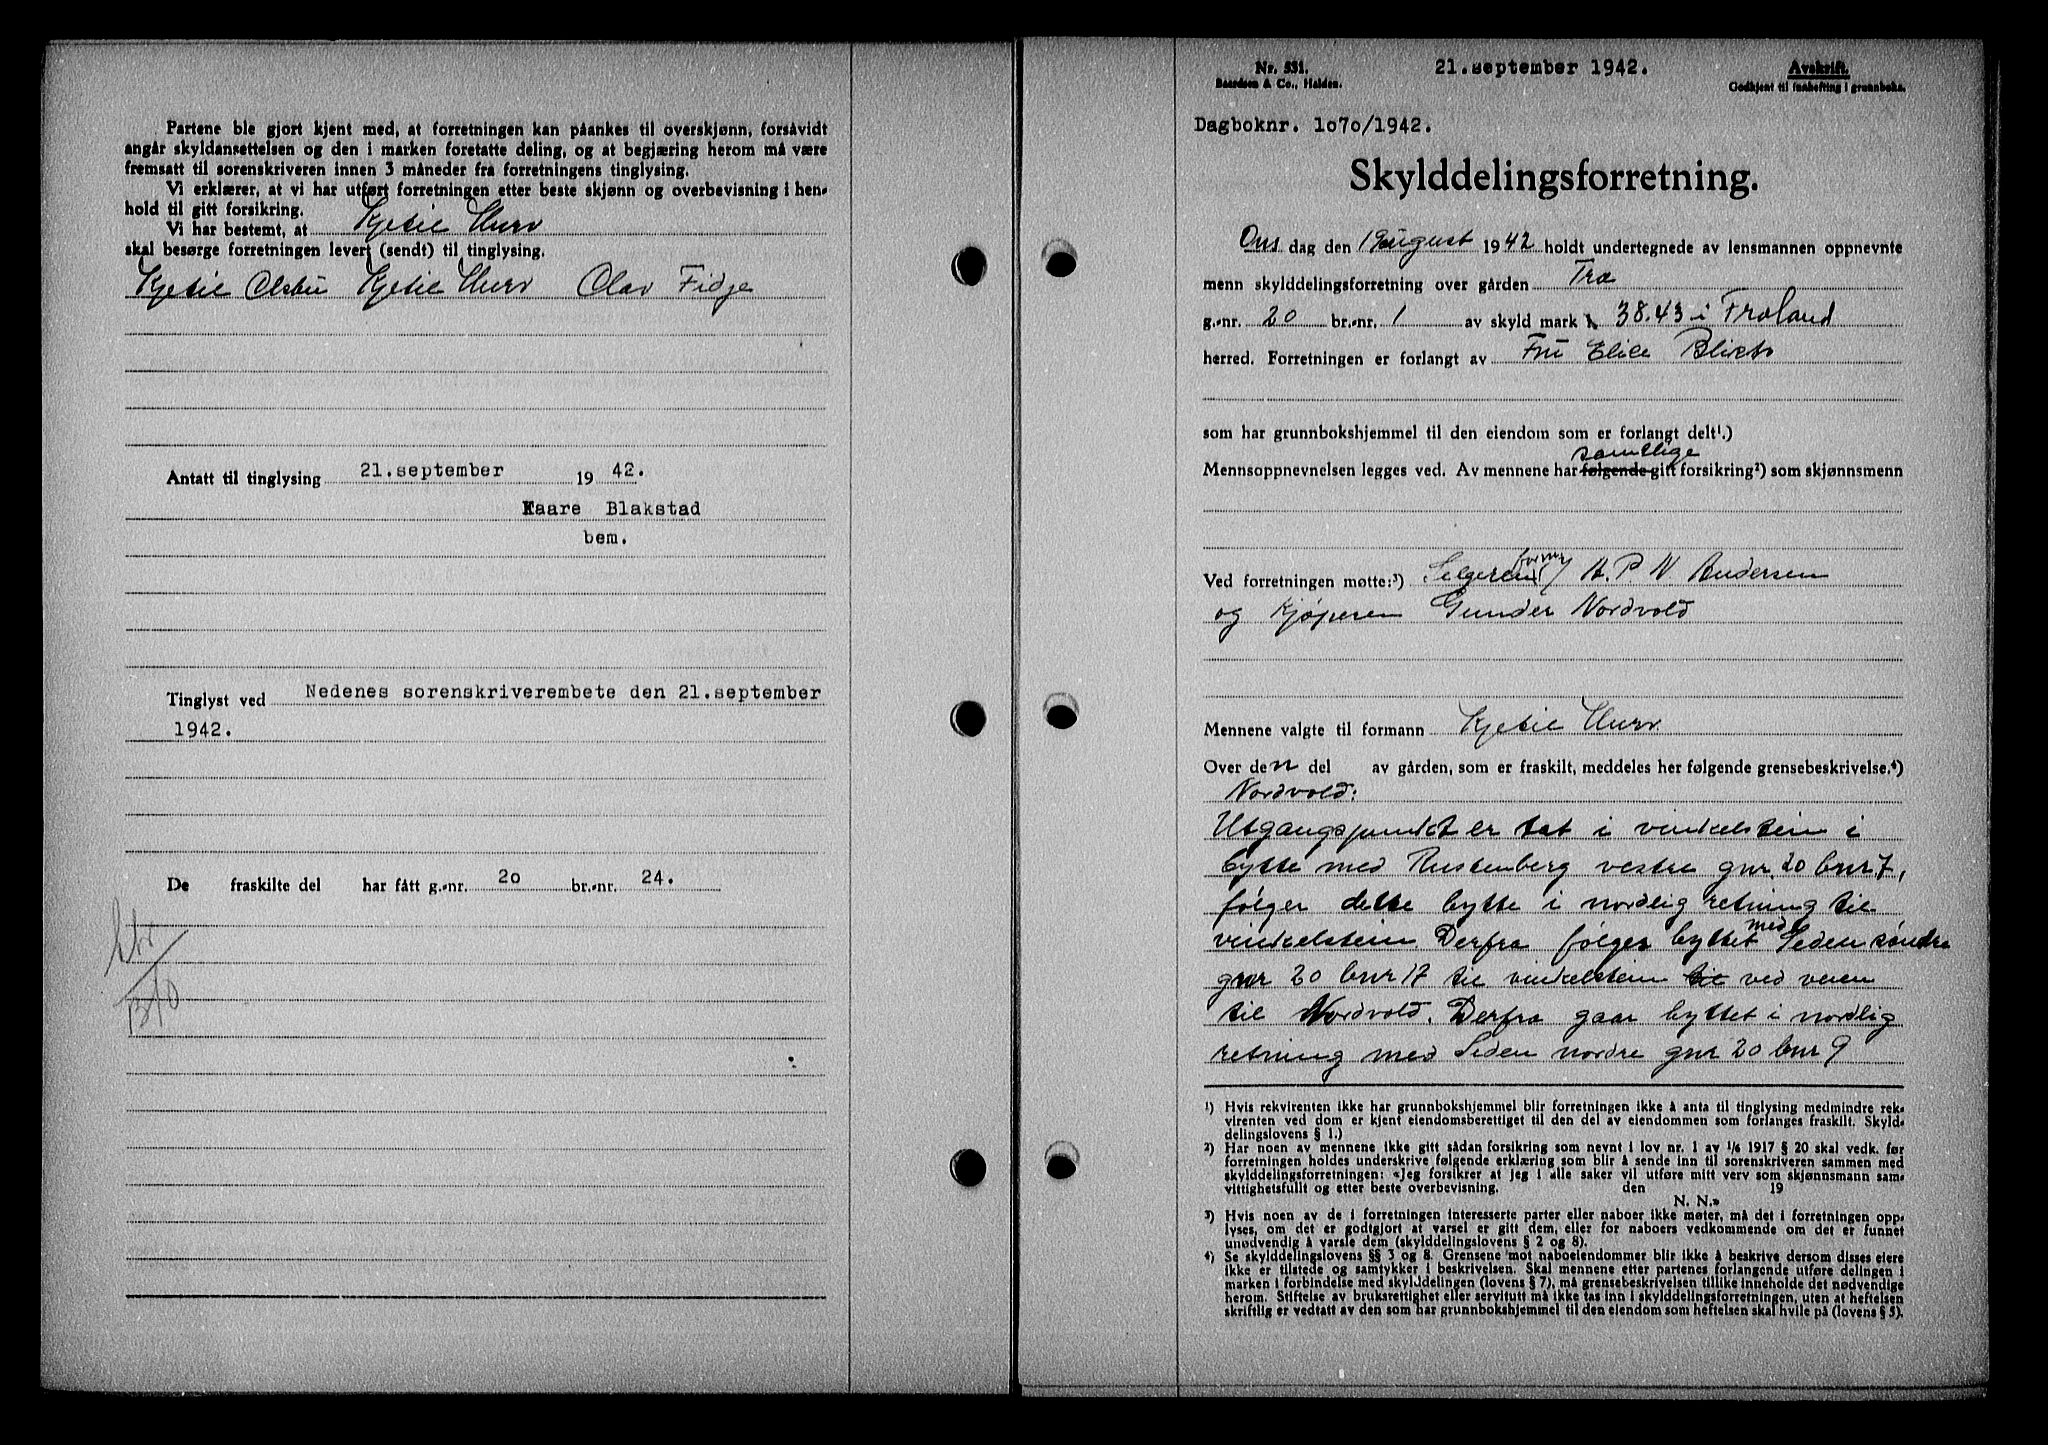 Partene ble gjort kjent med, at forretningen kan påankes til overskjønn, forsåvidt
angår skyldansettelsen og den i marken foretatte deling, og at begjæring herom må være
fremsatt til sorenskriveren innen 3 måneder fra forretningens tinglysing.
Vi erklærer, at vi har utført forretningen etter beste skjønn og overbevisning i hen-
hold til gitt forsikring.
Vi har bestemt, at Kjetil Hurv
skal besørge forretningen levert (sendt) til tinglysing.
Kjetil Olsbu Kjetil Hurv Olav Fidje
Antatt til tinglysing 21.september 19 42.
Kaare Blakstad
bem.
Tinglyst ved Nedenes sorenskriverembete den 21.september
1942.
De fraskilte del har fått g.-nr. 20 br.-nr. 24.
Nr. 531.
Baardsen & Co., Halden.
21.september 1942.
Avskrift.
Godkjent til innhefting i grunnboka.
Dagboknr. 1070/1942.
Skylddelingsforretning.
Ons dag den 19 august 1942 holdt undertegnede av lensmannen oppnevnte
menn skylddelingsforretning over gården Tra
g.-nr. 20 br.-nr. 1 av skyld mark 38.43 i Froland
herred. Forretningen er forlangt av Fru Elise Blixt
som har grunnbokshjemmel til den eiendom som er forlangt delt¹.)
samtlige
Mennsoppnevnelsen legges ved. Av mennene har følgende gitt forsikring²) som skjønnsmenn
Ved forretningen møtte:³) Selgeren A. P. N Andersen
og kjøperen Gunder Nordvold
Mennene valgte til formann Kjetil Hurv.
Over den del av gården, som er fraskilt, meddeles her følgende grensebeskrivelse.⁴)
Nordvold:
Utgangspunktet er tat i vinkelstein i
bytte med Rustenberg vestre gnr. 20 bnr 7,
følger dette bytte i nordlig retning til
vinkelstein. Derfra følger byttet med Seden søndre
gnr 20 bnr 17 til vinkelstein til ved veien
til Nordvold. Derfra gaar byttet i nordlig
retning med Seden nordre gnr 20 bnr 9
¹) Hvis rekvirenten ikke har grunnbokshjemmel blir forretningen ikke å anta til tinglysing medmindre rek-
virenten ved dom er kjent eiendomsberettiget til den del av eiendommen som forlanges fraskilt. Skyld-
delingslovens § 1.)
²) Har noen av mennene ikke gitt sådan forsikring som nevnt i lov nr. 1 av 1/6 1917 § 20 skal vedk. før
forretningen holdes underskrive følgende erklæring som blir å sende inn til sorenskriveren sammen med
skylddelingsforretningen: «Jeg forsikrer at jeg i alle saker vil utføre mitt verv som skjønnsmann sam-
vittighetsfullt og etter beste overbevisning. den 19
N. N.»
³) Hvis noen av de i forretningen interesserte parter eller naboer ikke møter, må det i forretningen opp-
lyses, om det er godtgjort at varsel er gitt dem, eller for naboers vedkommende om det er funnet
unødvendig å varsle dem (skylddelingslovens § 2 og 8).
⁴) Se skylddelingslovens §§ 3 og 8. Grensene mot naboeiendommer blir ikke å beskrive dersom disses eiere
ikke er tilstede og samtykker i beskrivelsen. Skal mennene etter partenes forlangende utføre delingen i
marken i forbindelse med skylddelingen (lovens § 7), må grensebeskrivelsen tillike inneholde det nødvendige
herom. Stiftelse av bruksrettighet eller servitutt må ikke tas inn i skylddelingsforretningen, uten at heftelsen
skriftlig er vedtatt av den som har grunnbokshjemmel til den eiendom som heftelsen skal hvile på (lovens § 5).